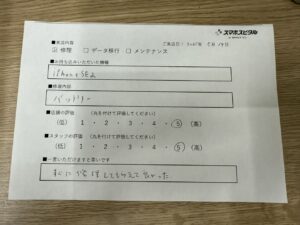 スマホスピタル
■来店内容
ご来店日：2025年 5月 14日
☑ 修理 □ データ移行 □ メンテナンス
■お持ち込みいただいた機種
iPhone SE2
■修理内容
バッテリー
■店舗の評価 (丸を付けて評価してください)
(低) 1 ・ 2 ・ 3 ・ 4 ・ 5 (高)
■スタッフの評価 (丸を付けて評価してください)
(低) 1 ・ 2 ・ 3 ・ 4 ・ 5 (高)
■一言いただけますと幸いです
すぐに修理してもらえて良かった